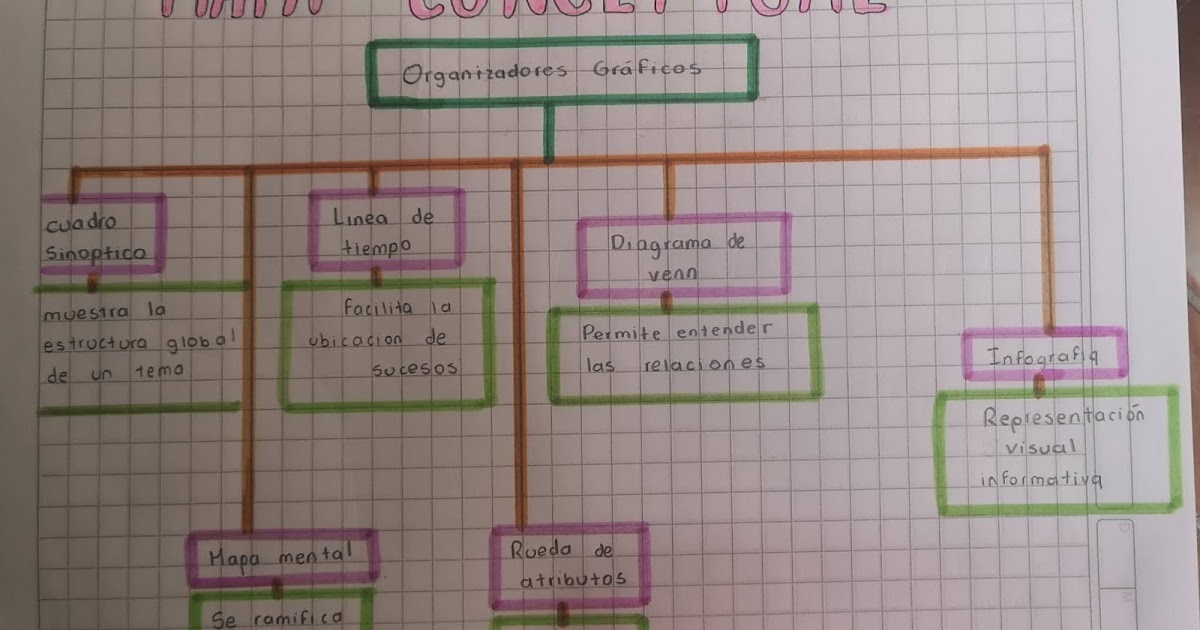 MAPA CONCEPTUAL
Organizadores Gráficos
cuadro
Sinoptico
muestra la
estructura global
de un tema
Linea de
tiempo
Facilita la
ubicacion de
sucesos
Diagrama de
venn
Permite entender
las relaciones
Infografia
Representación
visual
informativa
Mapa mental
Se ramifica
Rueda de
atributos